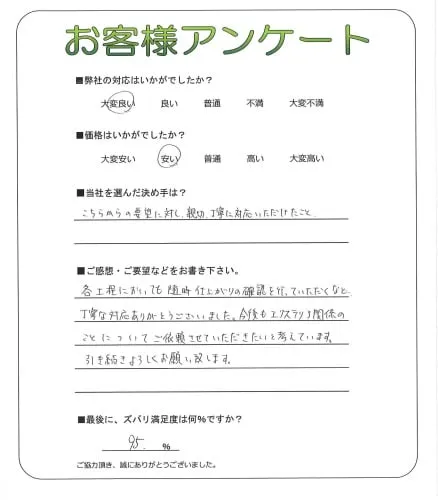 お客様アンケート
■弊社の対応はいかがでしたか？
大変良い 良い 普通 不満 大変不満
■価格はいかがでしたか？
大変安い 安い 普通 高い 大変高い
■当社を選んだ決め手は？
こちらからの要望に対し、親切、丁寧に対応いただけたこと。
■ご感想・ご要望などをお書き下さい。
各工程においても随時仕上がりの確認を行っていただくなど、
丁寧な対応ありがとうございました。今後もエクステリア関係の
ことについてご依頼させていただきたいと考えています。
引き続きよろしくお願い致します。
■最後に、ズバリ満足度は何%ですか？
95 %
ご協力頂き、誠にありがとうございました。